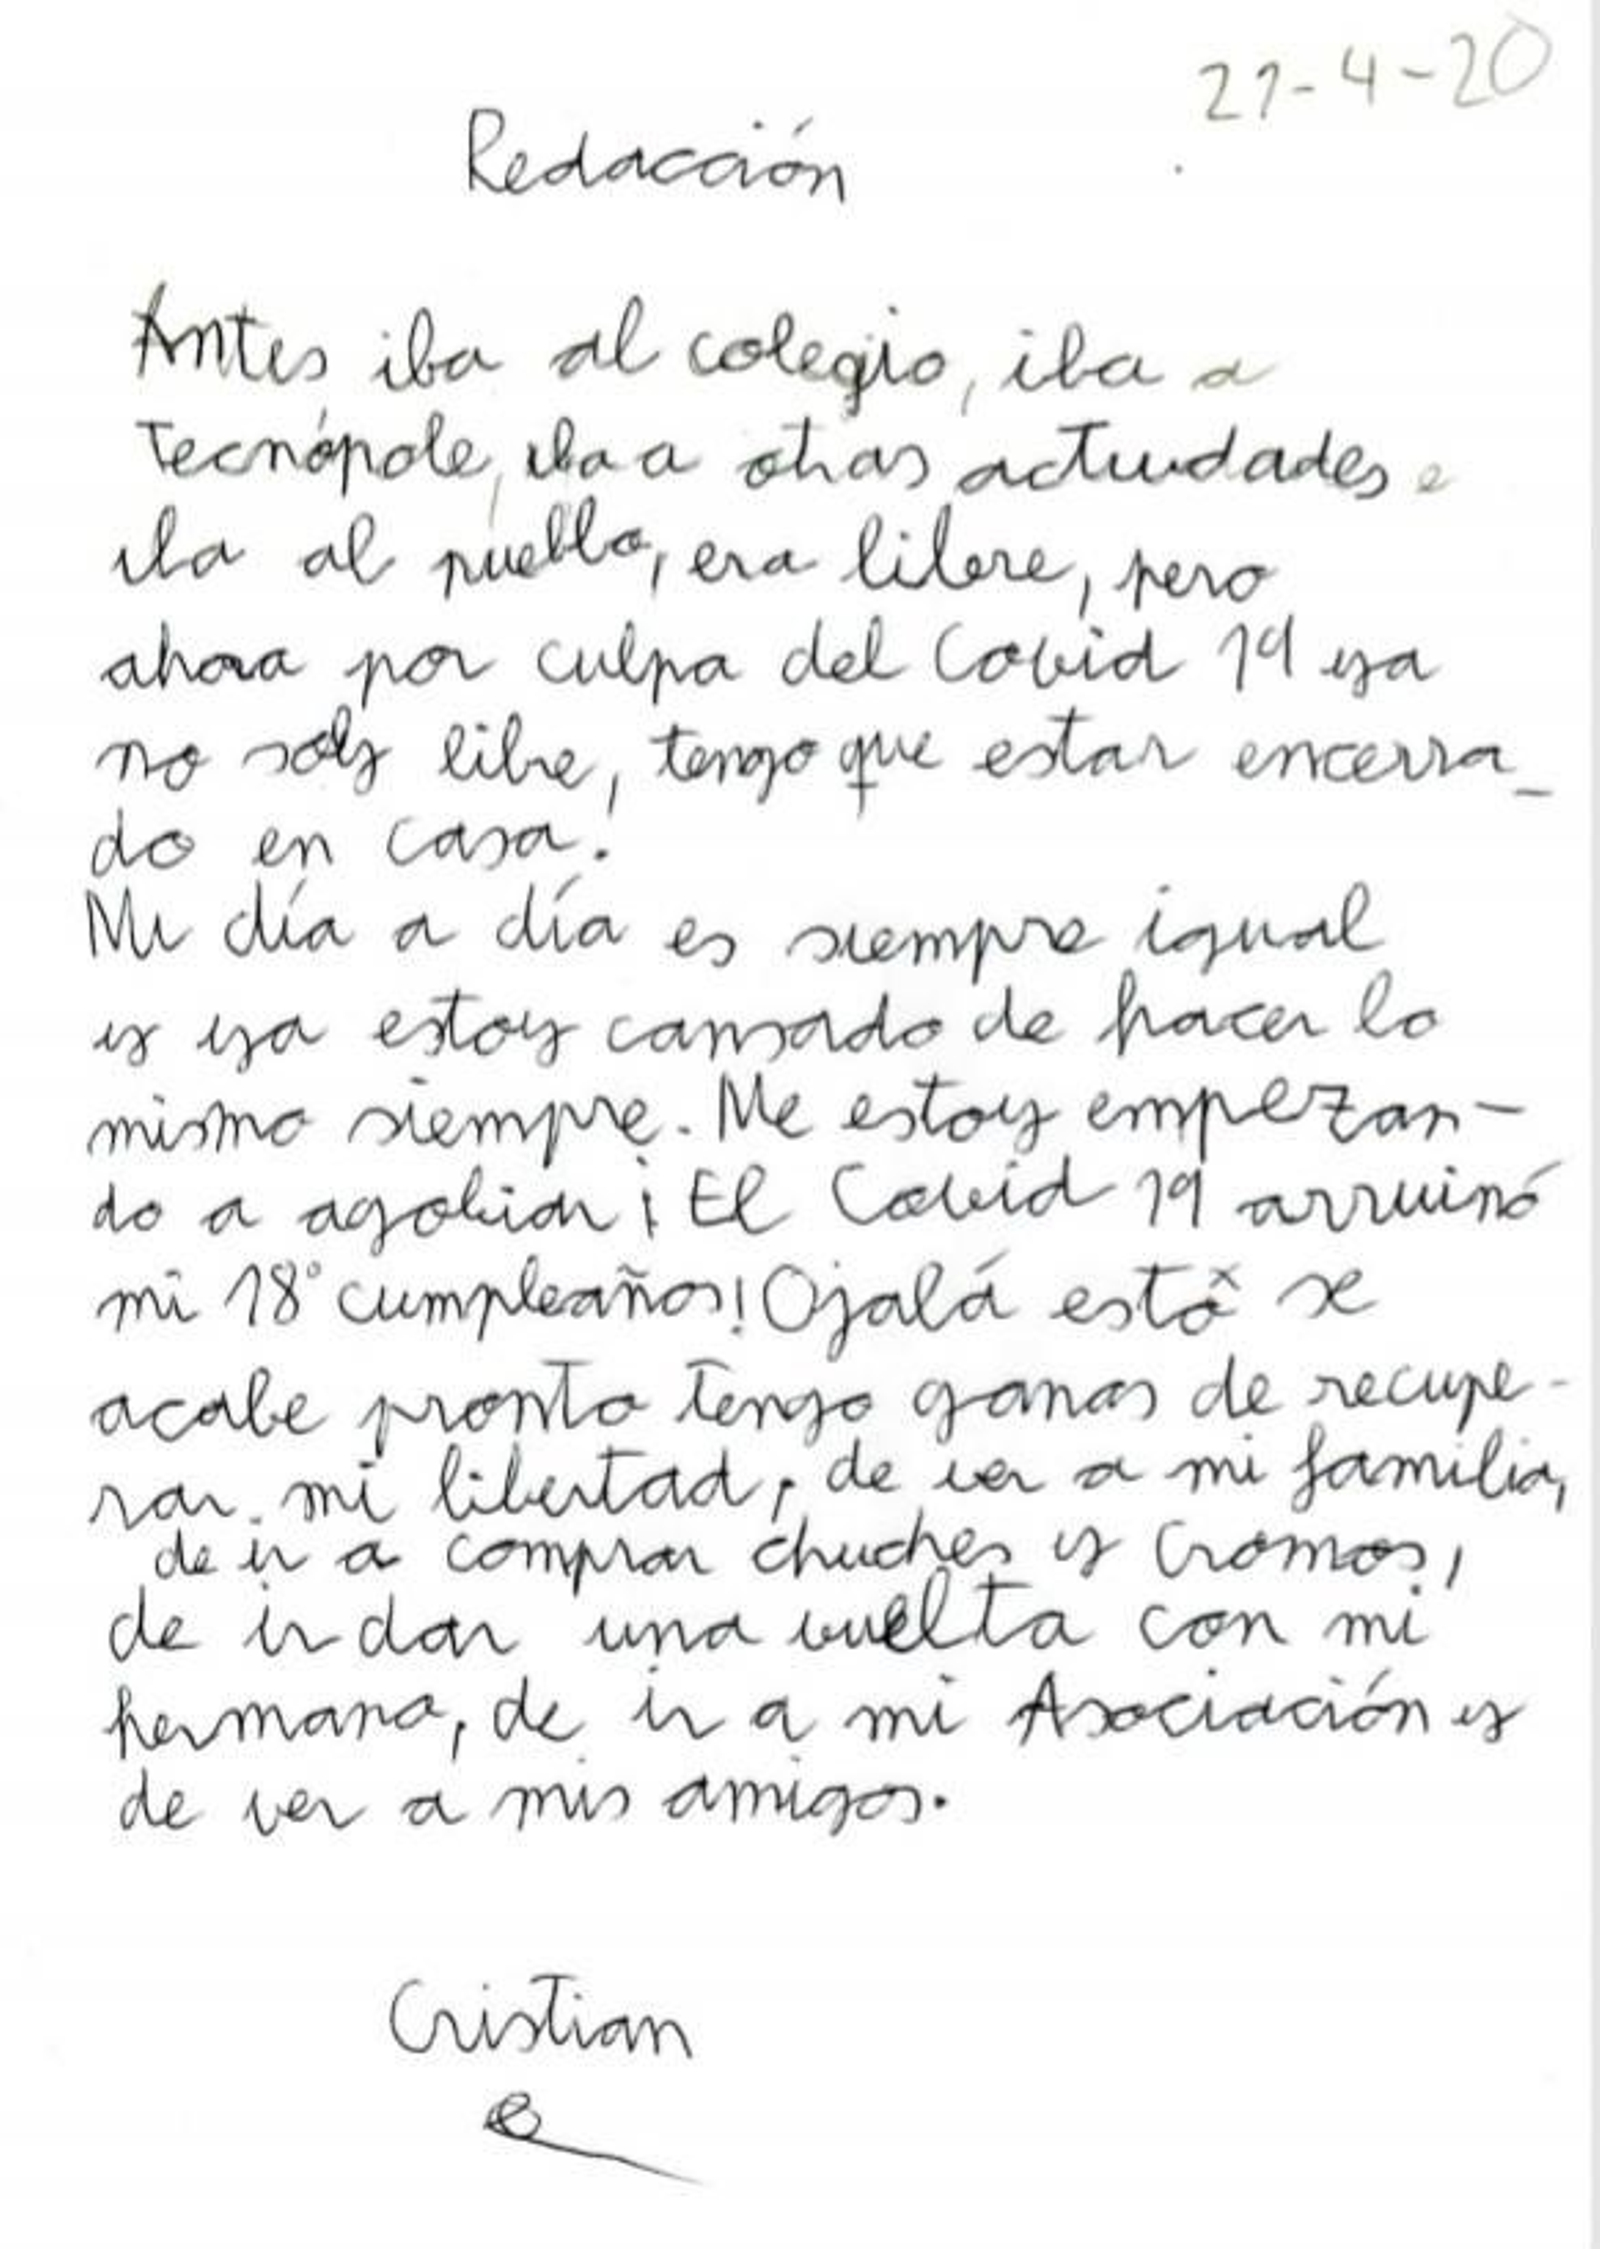 21-4-20
Redacción
Antes iba al colegio, iba a
Tecnópole, iba a otras actividades e
iba al pueblo, era libre, pero
ahora por culpa del Covid 19 ya
no soy libre, tengo que estar encerra-
do en casa.
Mi día a día es siempre igual
y ya estoy cansado de hacer lo
mismo siempre. Me estoy empezan-
do a agobiar ¡El Covid 19 arruinó
mi 18° cumpleaños! Ojalá esto se
acabe pronto Tengo ganas de recupe-
rar mi libertad, de ver a mi familia,
de ir a comprar chuches y Cromos,
de ir dar una vuelta con mi
hermana, de ir a mi Asociación y
de ver a mis amigos.
Cristian